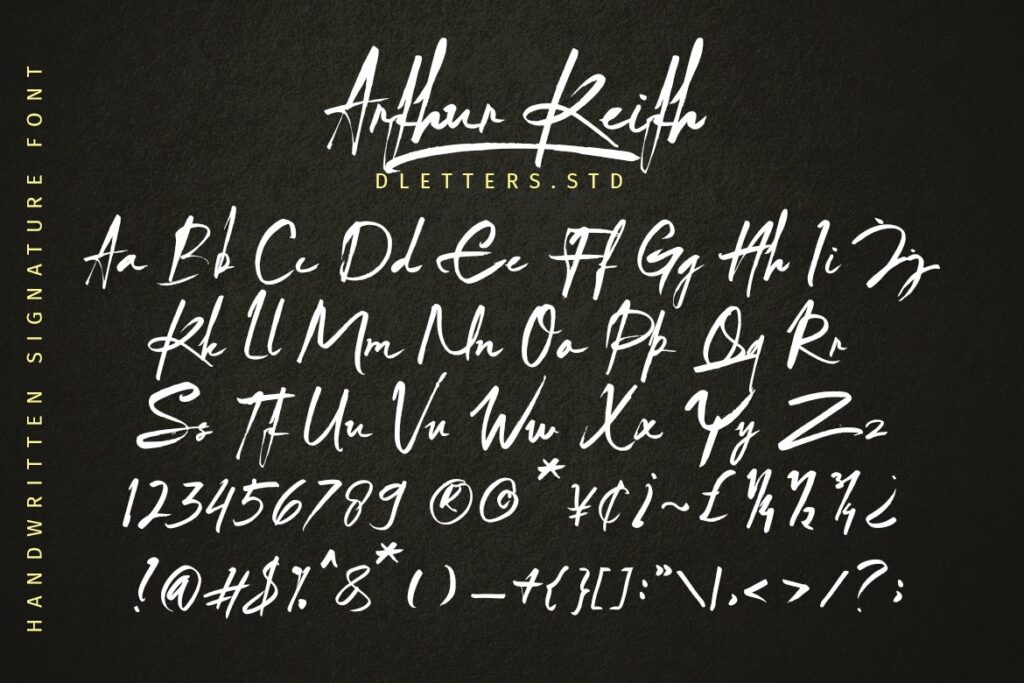 HANDWRITTEN SIGNATURE FONT
Arthur Keith
DLETTERS.STD
Aa Bb Cc Dd Ee Ff Gg Hh Ii Jj
Kk Ll Mm Nn Oo Pp Qq Rr
Ss Tt Uu Vv Ww Xx Yy Zz
123456789 ® © * ¥ ¢ ¡ ~ £ ¼ ½ ¾ ¿
!@#$%^&*() _ +{}[]:"\|,<>/?;